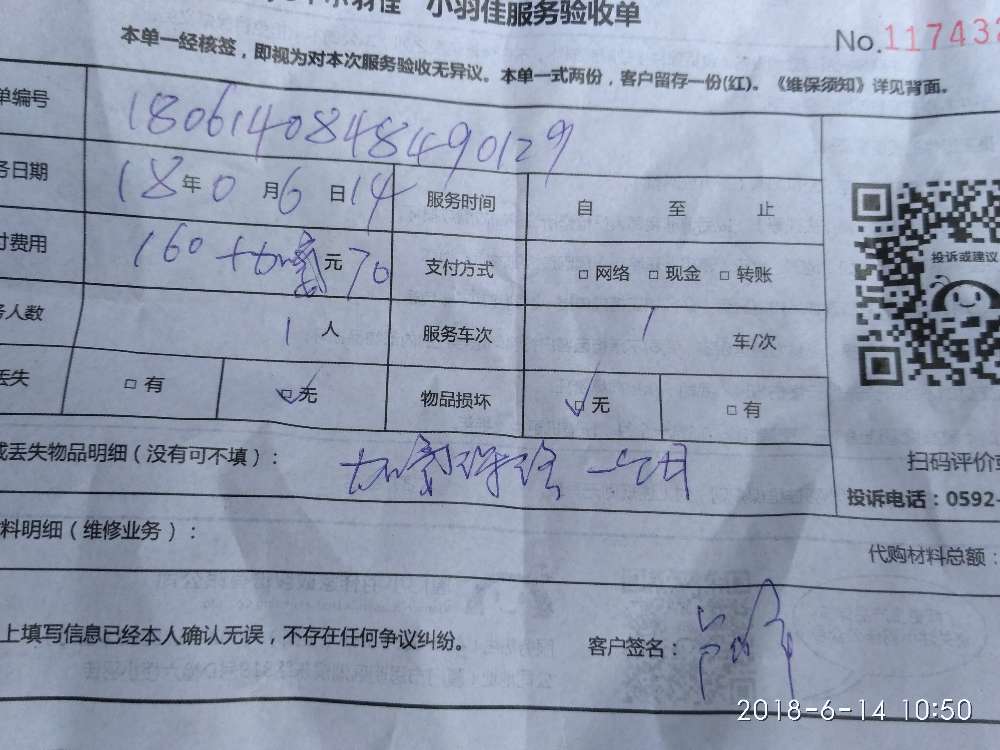 小羽佳服务验收单
No.117432
本单一经核签，即视为对本次服务验收无异议。本单一式两份，客户留存一份(红)。《维保须知》详见背面。
单编号 180614084849​0129
务日期 18年0月6日14 服务时间 自 至 止
付费用 160+加氟元70 支付方式 □网络 □现金 □转账
投诉或建议
务人数 1人 服务车次 1 车/次
丢失 □有 □无 物品损坏 □无 □有
或丢失物品明细（没有可不填）： 加氟保 一个月
扫码评价或
投诉电话：0592-
料明细（维修业务）：
代购材料总额：
上填写信息已经本人确认无误，不存在任何争议纠纷。 客户签名：
2018-6-14 10:50